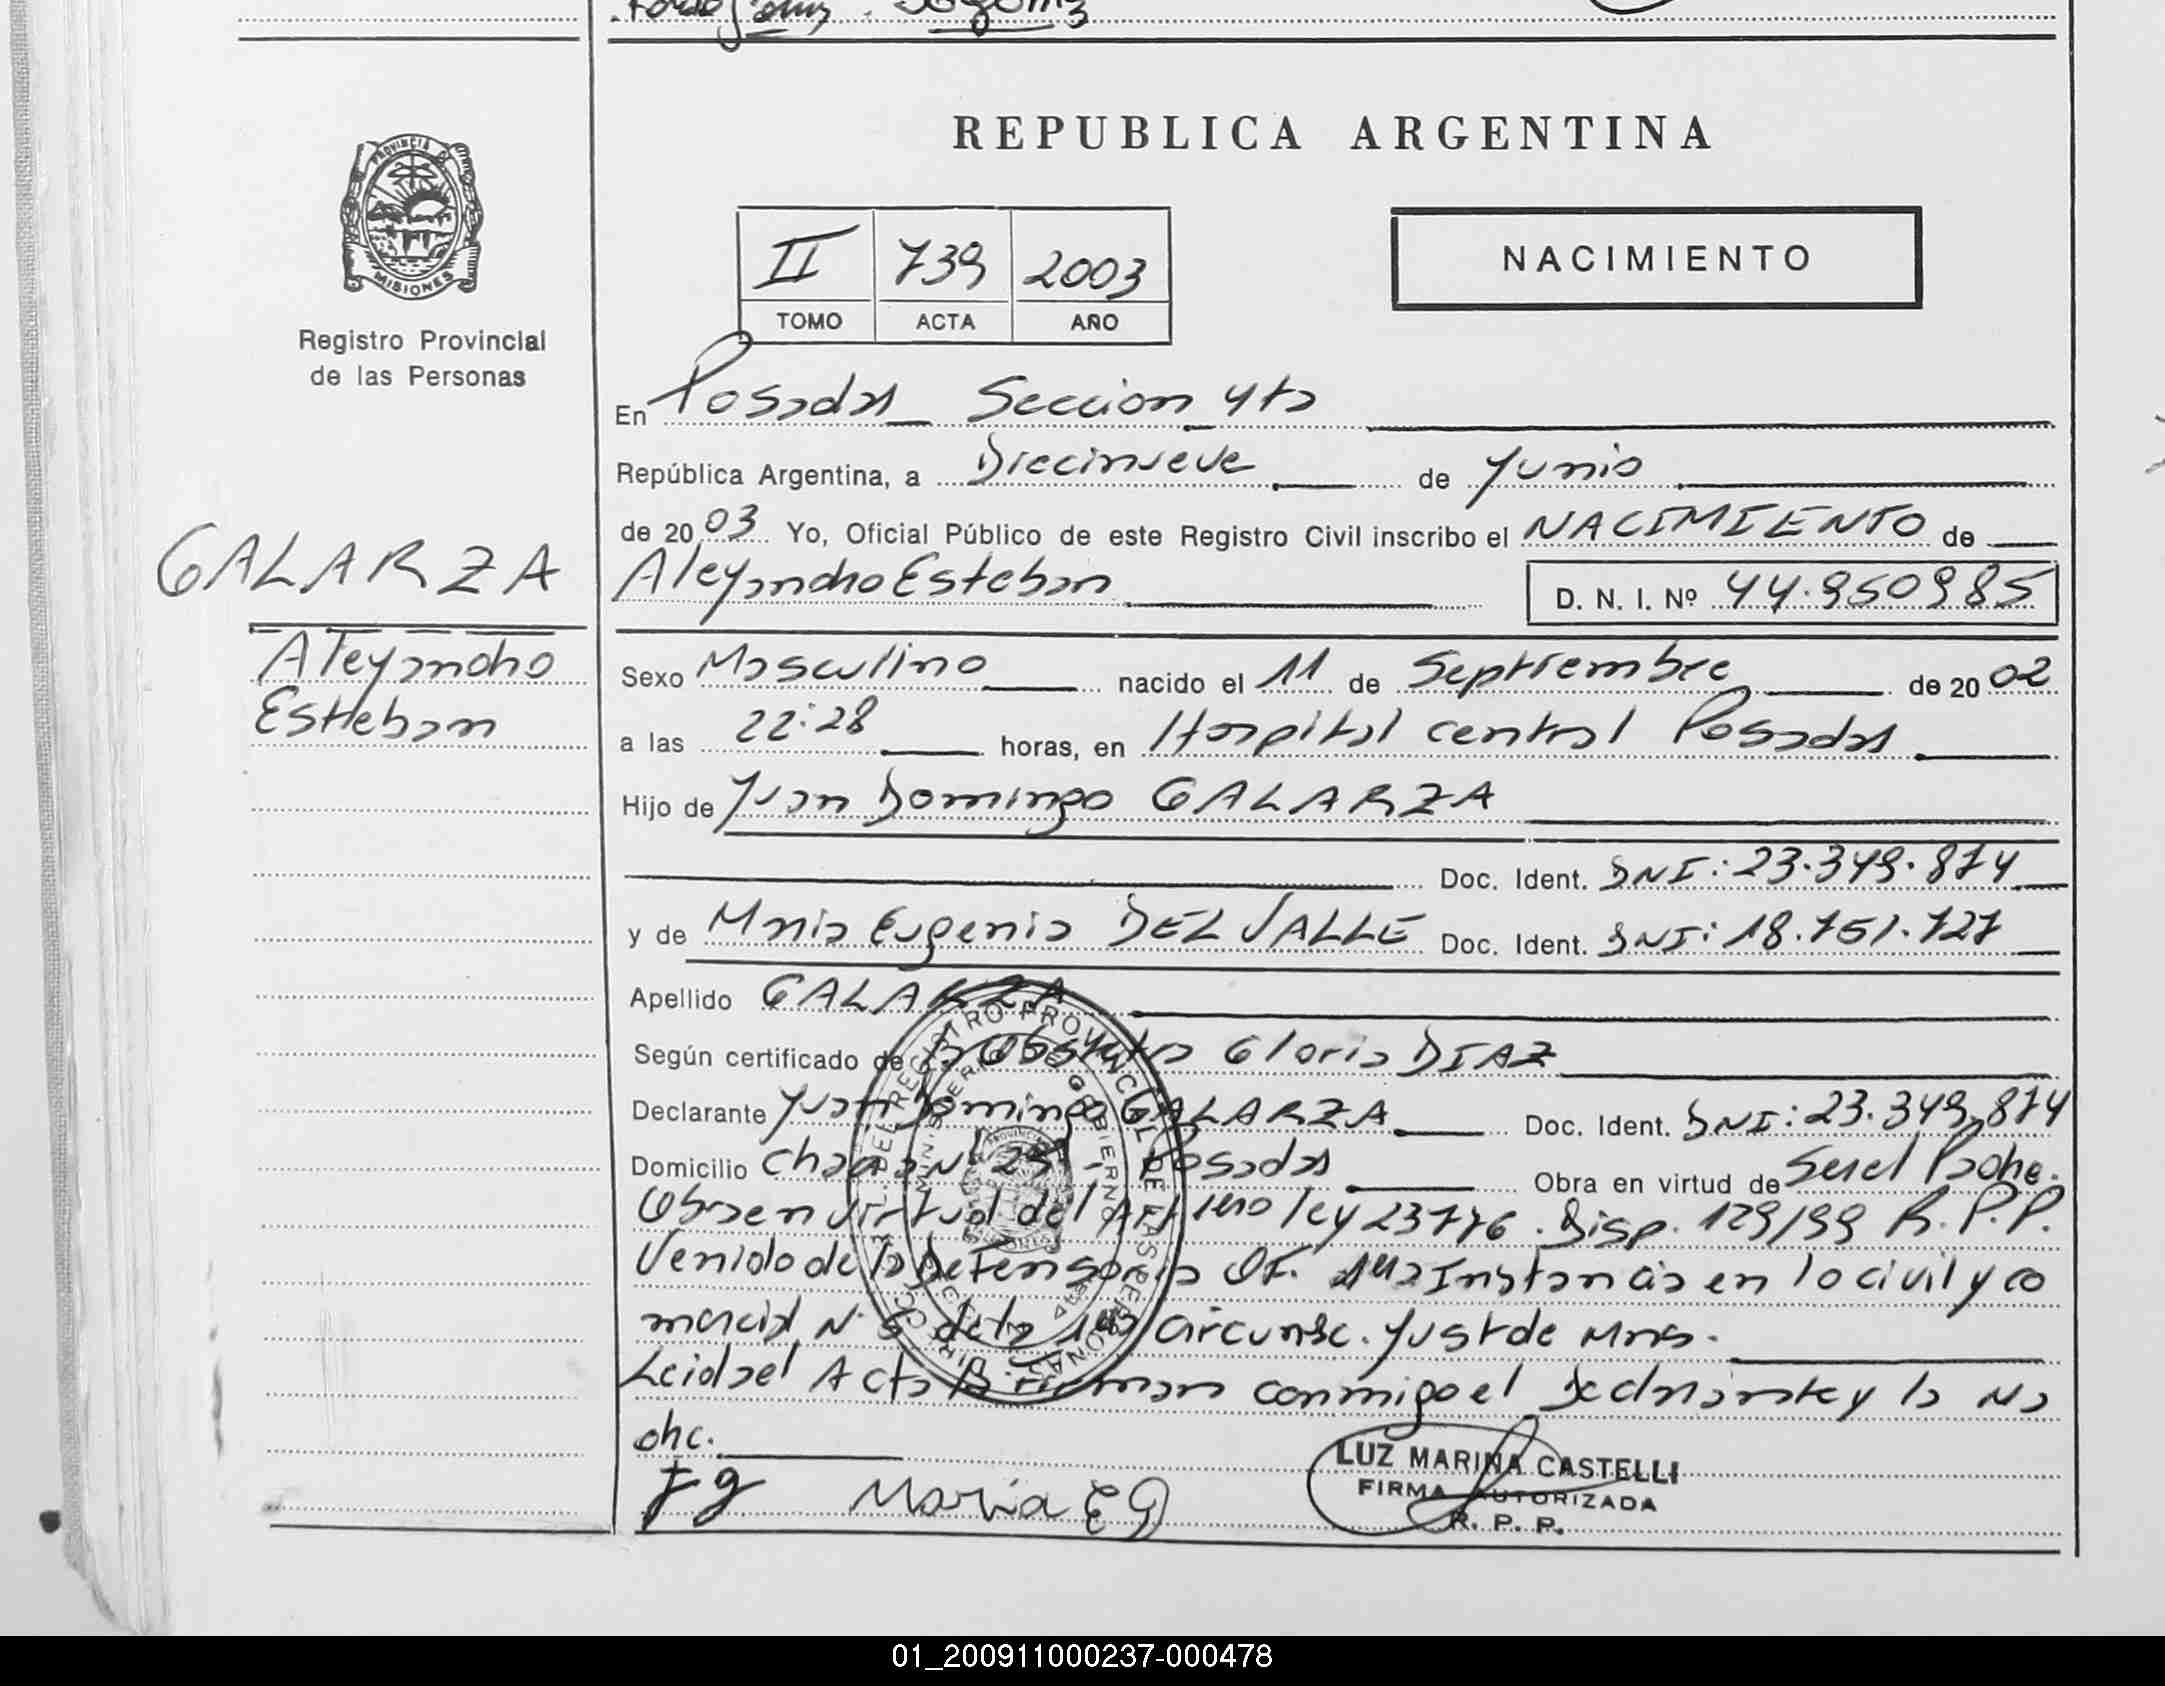 REPUBLICA ARGENTINA
PROVINCIA DE
MISIONES
Registro Provincial
de las Personas
II 739 2003
TOMO ACTA AÑO
NACIMIENTO
En Posadas Seccion 4ta
República Argentina, a Diecinueve de Junio
de 2003 Yo, Oficial Público de este Registro Civil inscribo el NACIMIENTO de
GALARZA
Alejandro Esteban
Alejandro Esteban D. N. I. Nº 44.950985
Sexo Masculino nacido el 11 de Septiembre de 2002
a las 22:28 horas, en Hospital central Posadas
Hijo de Juan Domingo GALARZA
Doc. Ident. DNI: 23.349.874
y de Maria Eugenia DEL VALLE Doc. Ident. DNI: 18.751.727
Apellido GALARZA
Según certificado de la Obstetra Gloria DIAZ
Declarante Juan Domingo GALARZA Doc. Ident. DNI: 23.349.874
Domicilio Chacra Nº 25 - Posadas Obra en virtud de Ser el Padre.
Obra en virtud del Art 1ero ley 23776. Disp. 129/99 R.P.P.
Venido de la Defensoria Of. 1ra Instancia en lo civil y co
mercial N. 5 de la 1ra circunsc. Just de Mns.
Leida el Acta firman conmigo el Declarante y la Ma
dre.
JG Maria EG
LUZ MARINA CASTELLI
FIRMA AUTORIZADA
R. P. P.
01_200911000237-000478